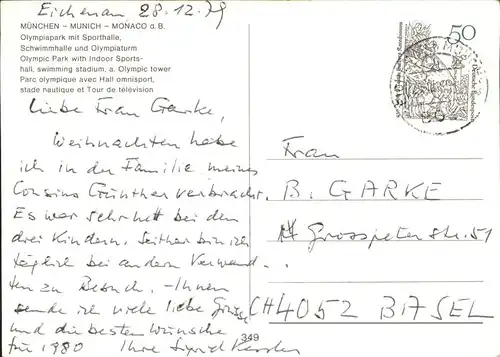 Eichenau 28.12.79
MÜNCHEN – MUNICH – MONACO d. B.
Olympiapark mit Sporthalle,
Schwimmhalle und Olympiaturm
Olympic Park with Indoor Sports-
hall, swimming stadium, a. Olympic tower
Parc olympique avec Hall omnisport,
stade nautique et Tour de télévision
Liebe Frau Garke,
Weihnachten habe
ich in der Familie meines
Cousins Günther verbracht.
Es war sehr nett bei den
drei Kindern. Seither bin ich
täglich bei andern Verwand-
ten zu Besuch. – Ihnen
sende ich viele liebe Grüsse
und die besten Wünsche
für 1980 Ihre Sigrid
349
50
Deutsche Bundespost
Frau
B. GARKE
Grosspeter str. 51
CH 4052 BASEL